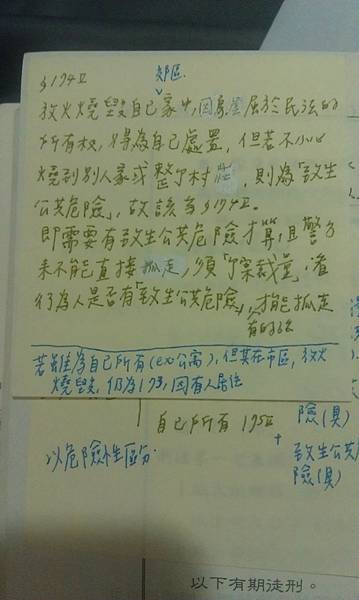 §174Ⅱ
郊區
放火燒毀自己家中,因房屋屬於民法的
所有权,得為自己處置,但若不小心
燒到別人家或整个村莊,則為「致生
公共危險」,故該為§174Ⅱ。
即需要有致生公共危險才算,且警方
來不能直接抓走,須「了案裁量」,看
行為人是否有「致生公共危險」,才能抓走
有的話
若雖為自己所有(ex公寓),但其在市區,放火
燒毀,仍為173,因有人居住
自己所有 175Ⅱ
以危險性區分
險(具)
+
致生公共危
險(具)
以下有期徒刑。